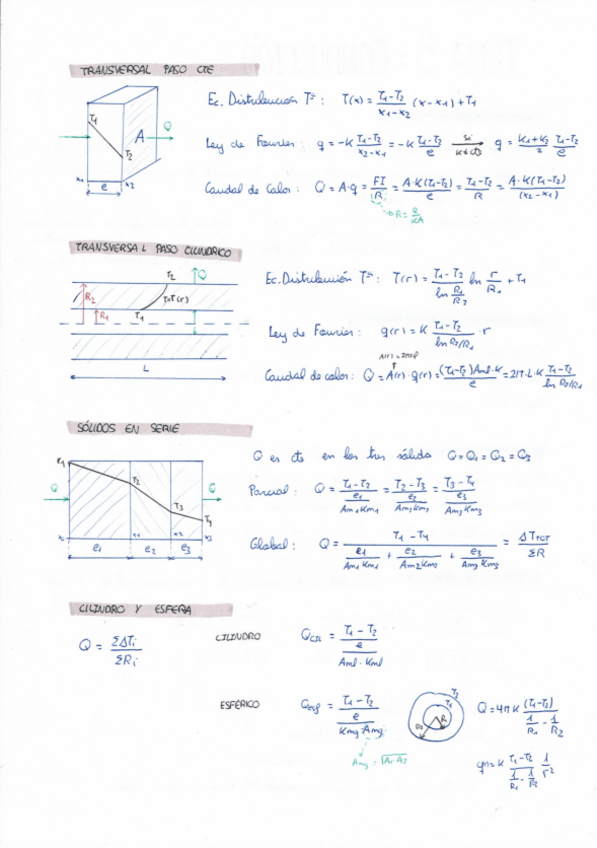 TRANSVERSAL PASO CTE
Ec. Distribución Tª: T(x) = (T1-T2)/(x1-x2) (x-x1)+T1
T1
A
Q
T2
x1 e x2
Ley de Fourier: q = -K (T1-T2)/(x2-x1) = -K (T1-T2)/e → q = (K1+K2)/2 (T1-T2)/e
Si
K≠cte
Caudal de Calor: Q = A·q = FI/R = A·K(T1-T2)/e = (T1-T2)/R = A·K(T1-T2)/(x2-x1)
R = e/KA
TRANSVERSAL PASO CILINDRICO
T2 Q
R2 T=T(r)
R1 T1
L
Ec. Distribución Tª: T(r) = (T1-T2)/(ln R1/R2) ln r/R1 + T1
Ley de Fourier: q(r) = K (T1-T2)/(ln R2/R1) · r
Caudal de calor: Q = A(r)·q(r) = (T1-T2)Aml·K/e = 2π·L·K (T1-T2)/(ln R2/R1)
SÓLIDOS EN SERIE
T1
T2
Q Q
T3
T4
x0 x1 x2 x3
e1 e2 e3
Q es cte en los tres sólido Q=Q1=Q2=Q3
Parcial: Q = (T1-T2)/(e1/(Am1 Km1)) = (T2-T3)/(e2/(Am2 Km2)) = (T3-T4)/(e3/(Am3 Km3))
Global: Q = (T1-T4)/(e1/(Am1 Km1) + e2/(Am2 Km2) + e3/(Am3 Km3)) = ΔTTOT/ΣR
CILINDRO Y ESFERA
Q = ΣΔTi/ΣRi
CILINDRO QCIL = (T1-T2)/(e/(Aml·Kml))
ESFÉRICO Qesf = (T1-T2)/(e/(Kmg·Amg))
Amg = √(A1·A2)
T2
T1
R1
Q = 4πK (T1-T2)/(1/R1 - 1/R2)
q(r) = K (T1-T2)/(1/R1 - 1/R2) 1/r²